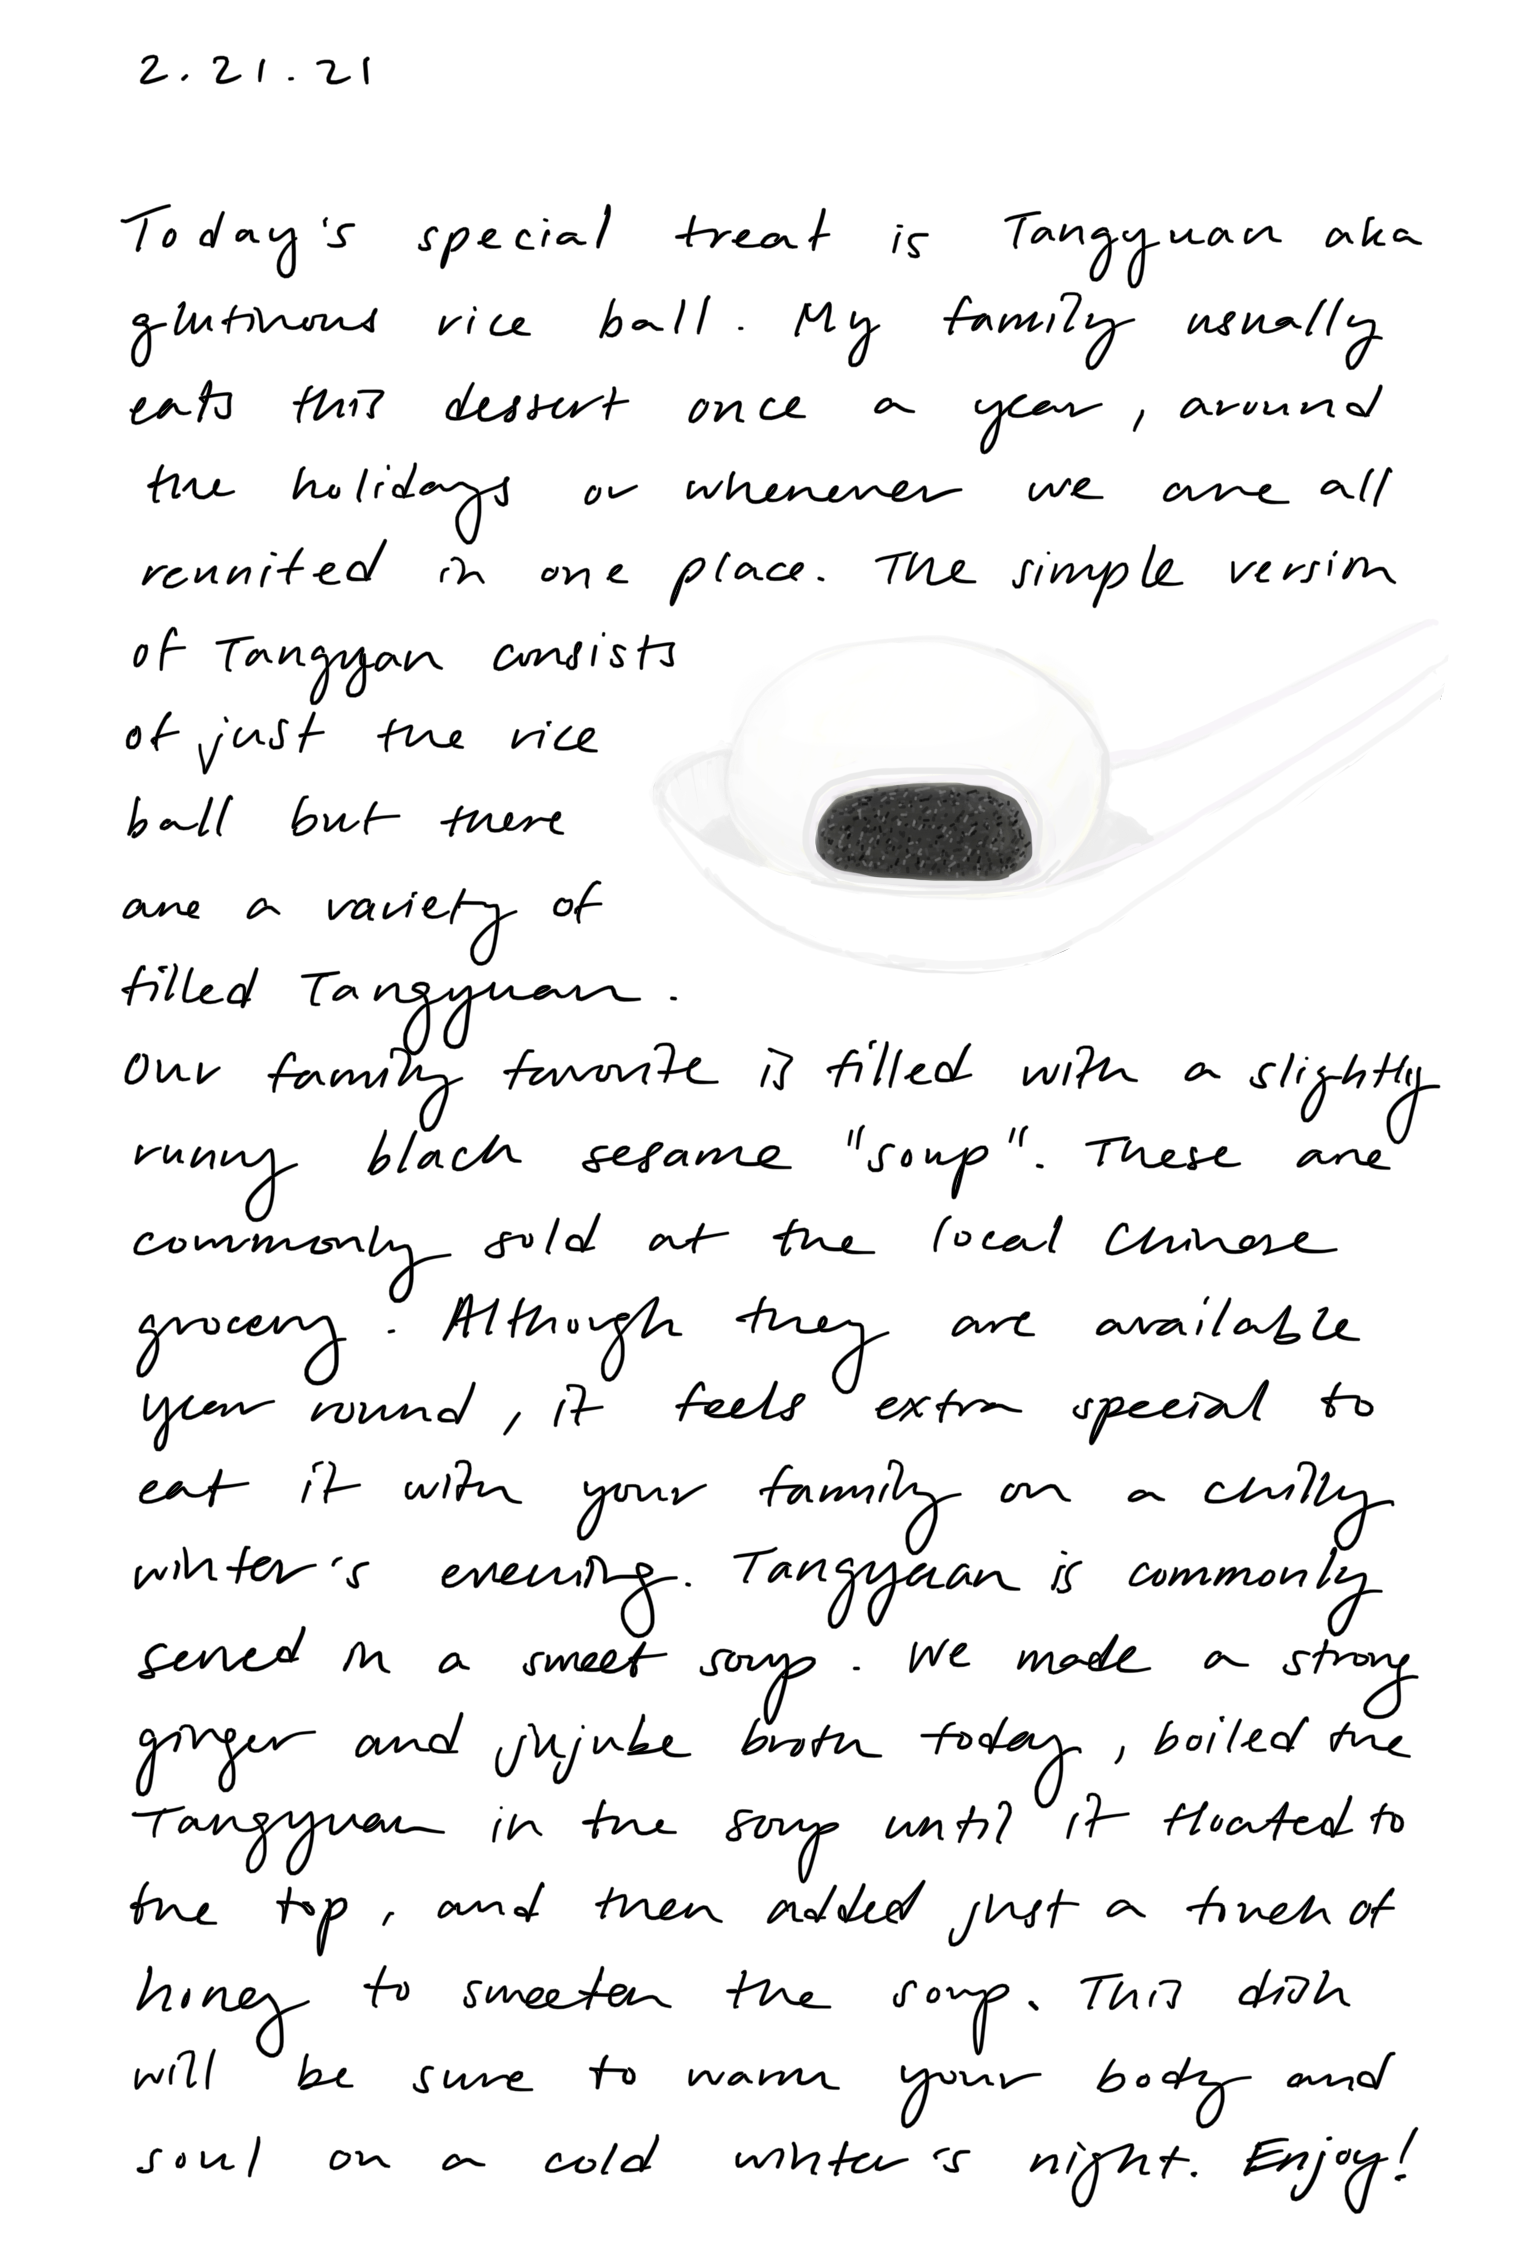 2.21.21
Today's special treat is Tangyuan aka
glutinous rice ball. My family usually
eats this dessert once a year, around
the holidays or whenever we are all
reunited in one place. The simple version
of Tangyan consists
of just the rice
ball but there
are a variety of
filled Tangyuan.
Our family favorite is filled with a slightly
runny black sesame "soup". These are
commonly sold at the local Chinese
grocery. Although they are available
year round, it feels extra special to
eat it with your family on a chilly
winter's evening. Tangyuan is commonly
served in a sweet soup. We made a strong
ginger and jujube broth today, boiled the
Tangyuan in the soup until it floated to
the top, and then added just a touch of
honey to sweeten the soup. This dish
will be sure to warm your body and
soul on a cold winter's night. Enjoy!